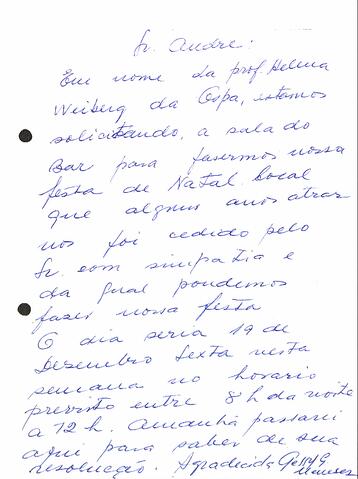 Sr. André:
Em nome da prof. Helena
Weiberg da Ospa, estamos
solicitando, a sala do
Bar para fasermos nossa
festa de Natal. Local
que alguns anos atras
nos foi cedido pelo
Sr. com simpatia e
da qual pondemos
fazer nossa festa
O dia seria 19 de
Dezembro Sexta nesta
semana no horario
previsto entre 8h da noite
a 12 h. Amanhã passarei
aqui para saber de sua
resolução. Agradecida